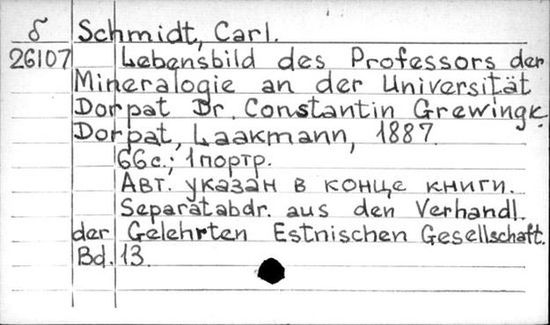 δ Schmidt, Carl.
26107 Lebensbild des Professors der
Mineralogie an der Universität
Dorpat Dr. Constantin Grewingk.
Dorpat, Laakmann, 1887.
66 с.; 1 портр.
Авт. указан в конце книги.
Separatabdr. aus den Verhandl.
der Gelehrten Estnischen Gesellschaft.
Bd. 13.